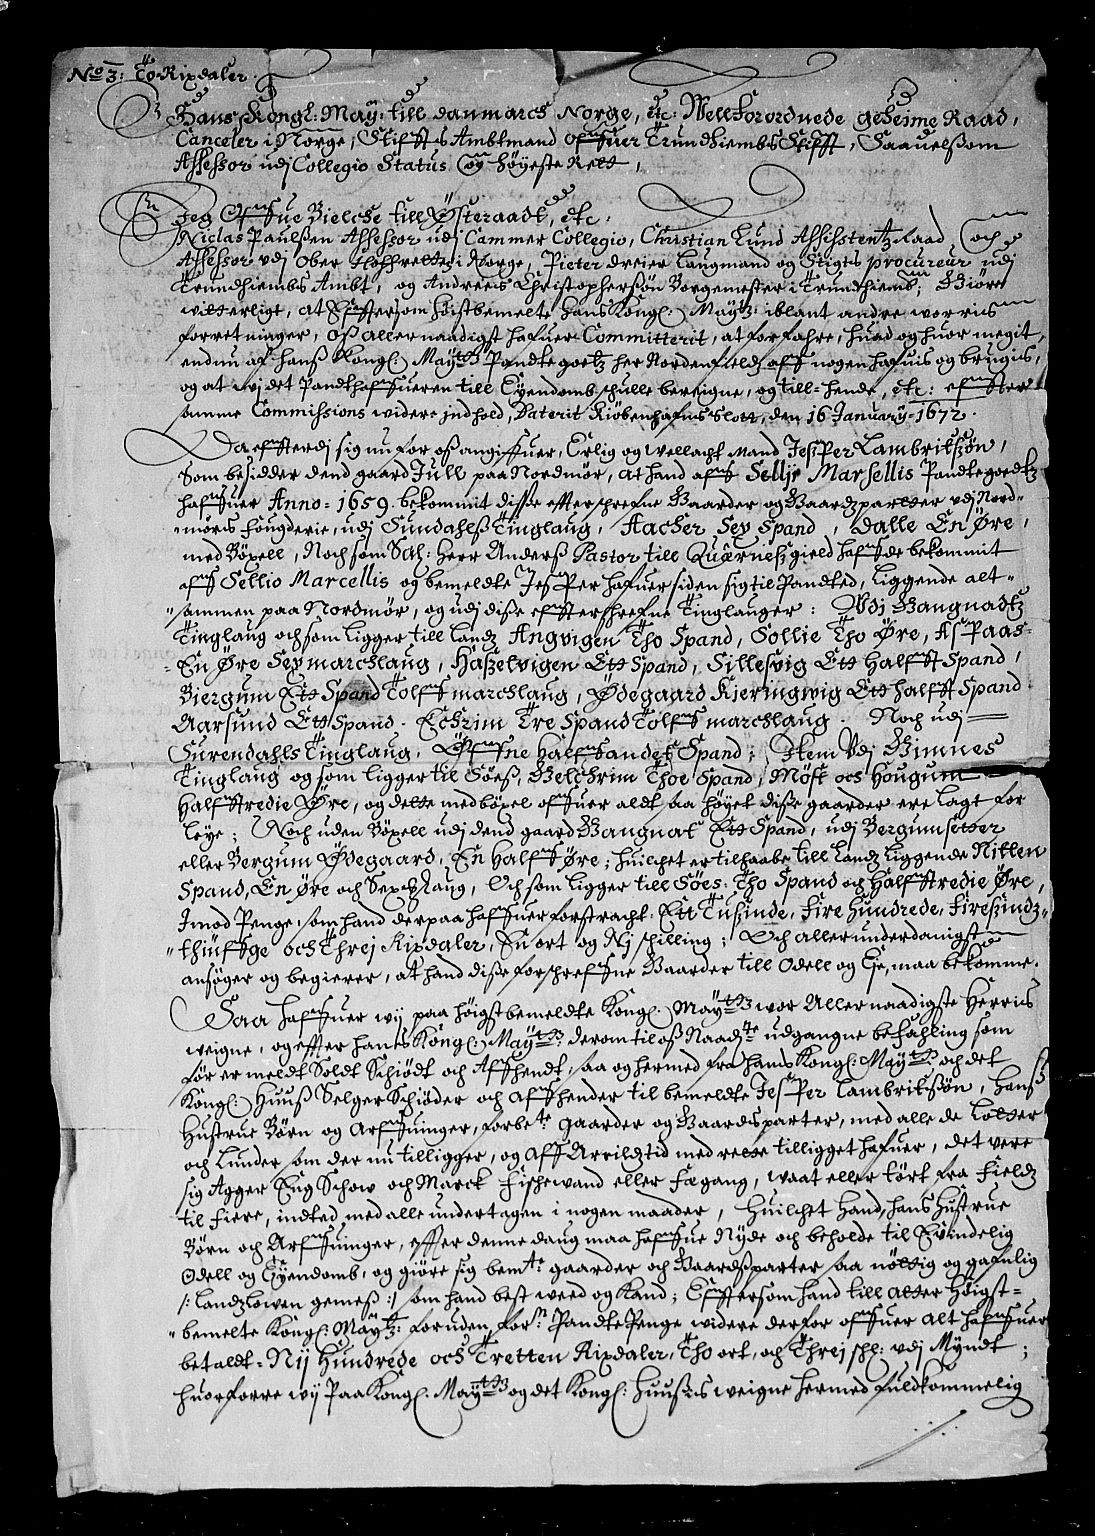 No 3: To Rixdaler.
Hans Kongl: May: till danmarck Norge, etc: Wellforordnede geheime Raad,
Canceler i Norge, Stiffts Ambtmand offuer Trundhiembs Stifft, Saauelsom
Assessor udj Collegio Status og höyeste Rett,
Jeg Offue Bielcke till Østeraadt, etc:
Niclas Paulsen Assessor udj Cammer Collegio, Christian Lund Assistentz Raad och
Assessor vdj Ober Hoffretten i Norge, Pieter dreier Laugmand og Stigts procureur udj
Trundhiembs Ambt, og Andreas Christophersön Borgemester i Trundhiemb, Giöre
witterligt, at Effter som höistbemelte Hans Kongl: Maytz: iblant andre worris
forretninger, Oss allernaadigst hafuer Committerit, at forfahre, huad og huor megit
endnu af hanss Kongl: Maytz Pandtegoetz her Nordenfields aff nogen hafuis og brugis,
og at vej det Pandthaffueren till Eyendomb schulle bereigne, og till-hende, etc: effter
samme Commissions widere jndhold, Daterit Kiöbenhafns Slott, den 16 January 1672.
Da effterdj sig nu for oss angiffuer, Erlig og wellacht Mand Jesper Lambrittssön,
Som besidder dend gaard Jull paa Nordmör, at hand aff Sellje Marsellis Pandtegoedtz
haffuer Anno 1659. bekommit disse efftterschrefne Gaarder og Gaardzpartter vdj Nord-
mörs fougderie, udj Sundahlss Tinglaug, Aacher Sex Spand, Dalle En Øre,
med Böxell, Noch som Sal: Herr Anderss Pastor till Quærness gield haffde bekommit
aff Sellio Marcellis og bemeldte Jesper hafuer siden sig til Pandted, liggende alt-
sammen paa Nordmör, og udj disse effterschrefne Tinglauger: Vdj Gangnadtz
Tinglaug och som ligger till Landz Angvigen Tho Spand, Sollie Tho Øre, Aspaas
En Øre Sex marcklaug, Hasselvigen Ett Spand, Sillesvig Ett halfft Spand,
Biergum Ett Spand Tolff marcklaug, Ødegaard Kieringwig Ett halfft Spand
Aarsund Ett Spand. Echrim Tre Spand Tolff marcklaug. Noch udj
Surendahls Tinglaug, Øffne halffandet Spand; Item Vdj Gimnes
Tinglaug og som ligger til Söess, Belchrim Thoe Spand, Möst och Hougum
Halfftredie Øre, og dette med böxel offuer aldt saa höyet disse gaarder ere lagt for
leye; Noch uden Böxell udj dend gaard Gangnat Ett Spand, udj Bergumsetter
eller Bergum Ødegaard, En halff Øre; huilchet er tilhaabe till Landz liggende Nitten
Spand, En øre och Sex Laug, Och som ligger till Söes: Tho Spand och Halfftredie Øre,
Imod Penge, som hand derpaa haffuer forstracht. Ett Tusinde, Fire hundrede, Firesindz-
thiuffge och Threj Rixdaler, En ort og Nj schilling; Och allerunderdanigst
ansöger og begierer, at hand disse forschreffne Gaarder till Odell og Eje, maa bekomme.
Saa haffuer wij paa höigstbemeldte Kongl: Maytz wor Allernaadigste Herris
weigne, og effter hans Kongl: Maytz: derom til oss Naadte udgangne befahling som
för er meldt Soldt Schiödt och Affhendt, saa og hermed fra hans Kongl: Maytz och det
Kongl: Huuss Selger Schiöder och Affhender til bemeldte Jesper Lambrittssön, Hanss
Hustrue Börn og Arffuinger, forbete gaarder og Gaardsparter, med alle de Lotter
och Lunder som der nu tilligger, og Aff Arrildztid med rette tilligget hafuer, det vere
sig Agger Eng Schow och Marck Fischewand eller Fægang, waat eller tört fra Field
til Fiere, indted med alle undertagen i nogen maader, Huilchet Hand, hans Hustrue
Börn och Arffuinger, effter denne daug maa haffue Nyde och beholde til Evindelig
Odell og Eyendomb, og giöre sig bemte: gaarder och Gaardssparter saa nöttig og gafnlig
/: Landzlowen gemess :/ som hand best weed og Kand; Efftersom hand till atter Höigst-
bemelte Kongl: Maytz: foruden forn: Pandte Penge widere derfor offuer alt haffuer
betaldt - Nij Hundrede och Tretten Rixdaler, Tho ort, och Threj schl: vdj Myndt;
huorforre wij Paa Kongl: Maytz og det Kongl: Huusses weigne hermed fuldkommelig